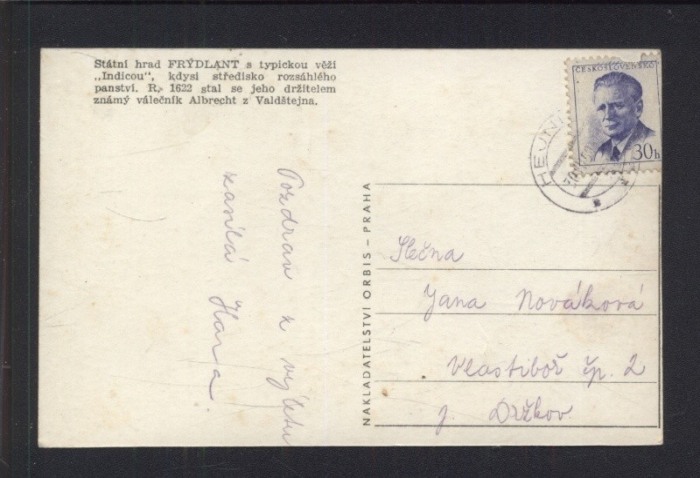 Státní hrad FRÝDLANT s typickou věží
„Indicou", kdysi středisko rozsáhlého
panství. R. 1622 stal se jeho držitelem
známý válečník Albrecht z Valdštejna.
ČESKOSLOVENSKO
30h
Pozdrav z výletu
zasílá
NAKLADATELSTVÍ ORBIS – PRAHA
Slečna
Jana Nováková
Vlastiboř čp. 2
p. Držkov